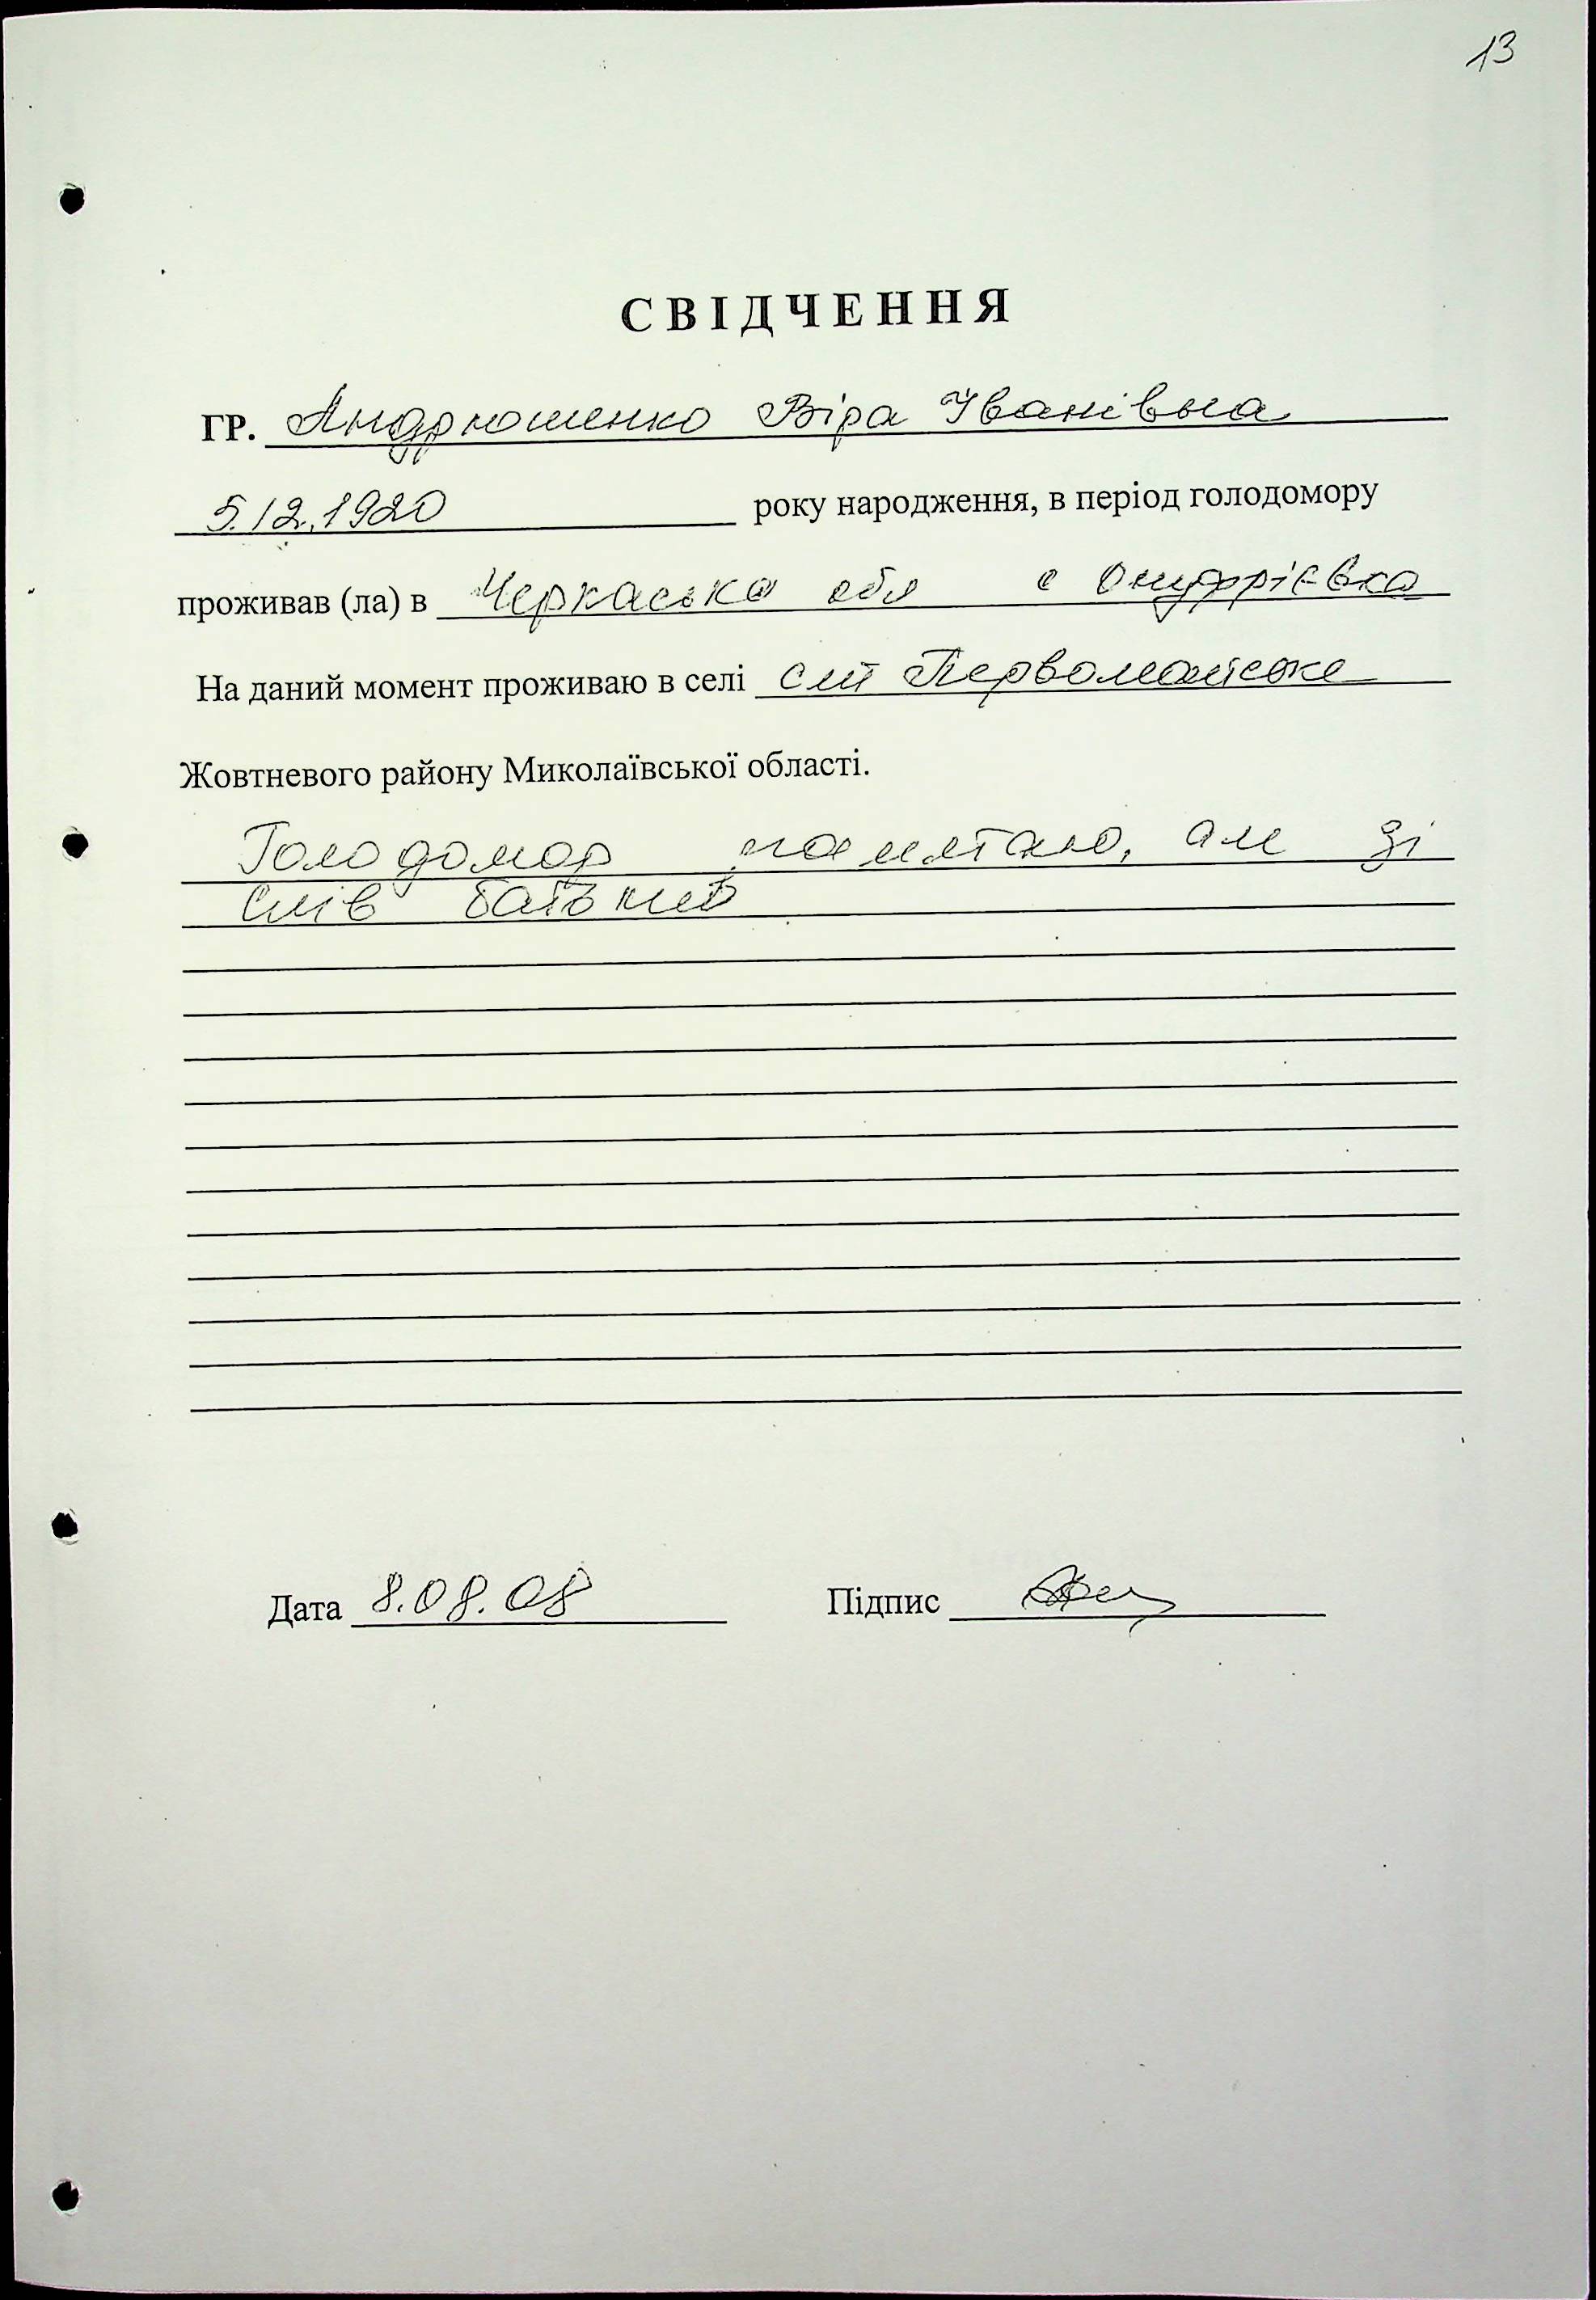 13
СВІДЧЕННЯ
ГР. Андрюшенко Віра Іванівна
5.12.1920 року народження, в період голодомору
проживав (ла) в Черкаська обл с Онуфрієвка
На даний момент проживаю в селі смт Первомайське
Жовтневого району Миколаївської області.
Голодомор памятаю, але зі
слів батьків
Дата 8.08.08 Підпис